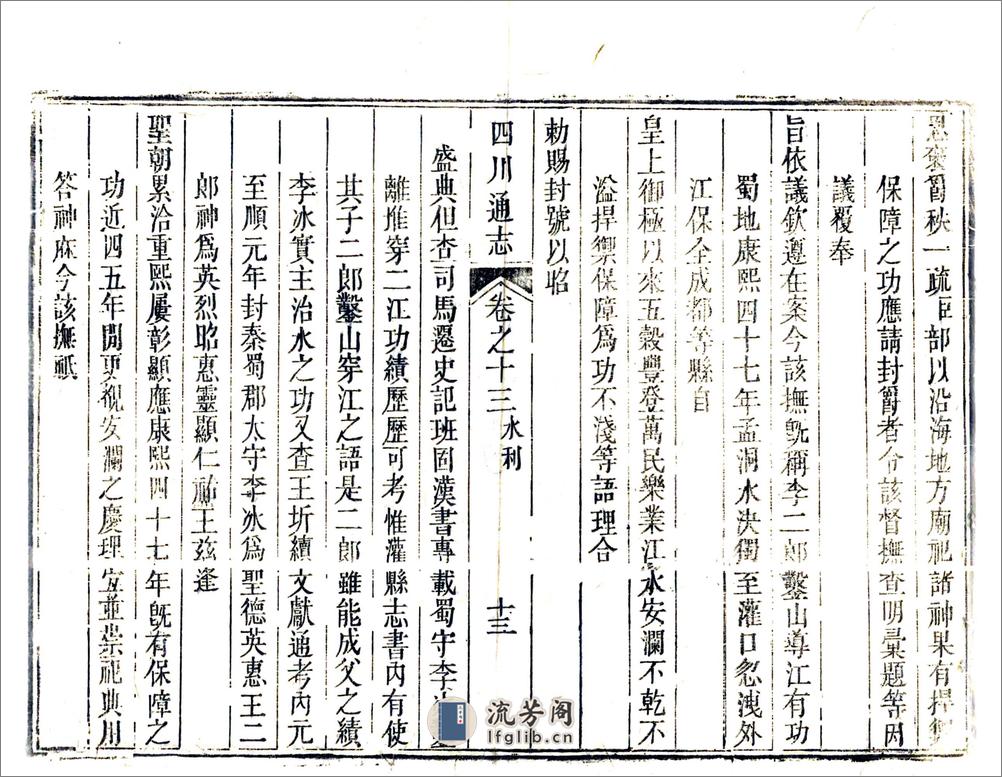 恩褒爵秩一疏臣部以沿海地方廟祀諸神果有捍禦
保障之功應請封爵者令該督撫查明彙題等因
議覆奉
旨依議欽遵在案今該撫旣稱李二郎鑿山導江有功
蜀地康熙四十七年孟洞水決獨至灌口忽洩外
江保全成都等縣自
皇上御極以來五穀豐登萬民樂業江水安瀾不乾不
溢捍禦保障爲功不淺等語理合
勅賜封號以昭
四川通志 卷之十三 水利 十三
盛典但查司馬遷史記班固漢書專載蜀守李冰鑿
離堆穿二江功績歷歷可考惟灌縣志書內有使
其子二郎鑿山穿江之語是二郎雖能成父之績
李冰實主治水之功又查王圻續文獻通考內元
至順元年封秦蜀郡太守李冰爲聖德英惠王二
郎神爲英烈昭惠靈顯仁祐王茲逢
聖朝累洽重熙屢彰顯應康熙四十七年旣有保障之
功近四五年閒更覩安瀾之慶理宜並崇祀典用
答神庥今該撫祇
流芳阁
lfglib.cn